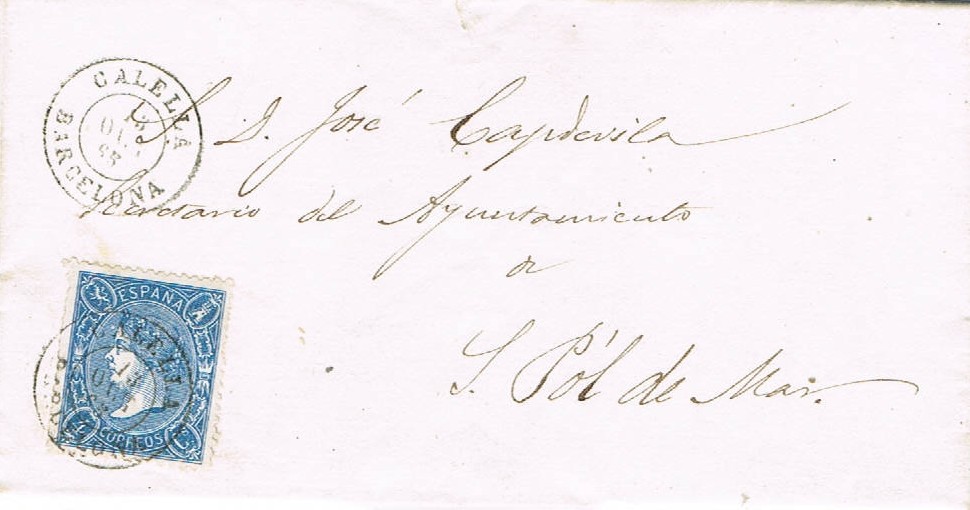 CALELLA
BARCELONA
S. D. José Capdevila
Secretario del Ayuntamiento
de
S. Pól de Mar.
ESPAÑA
CORREOS
CALELLA